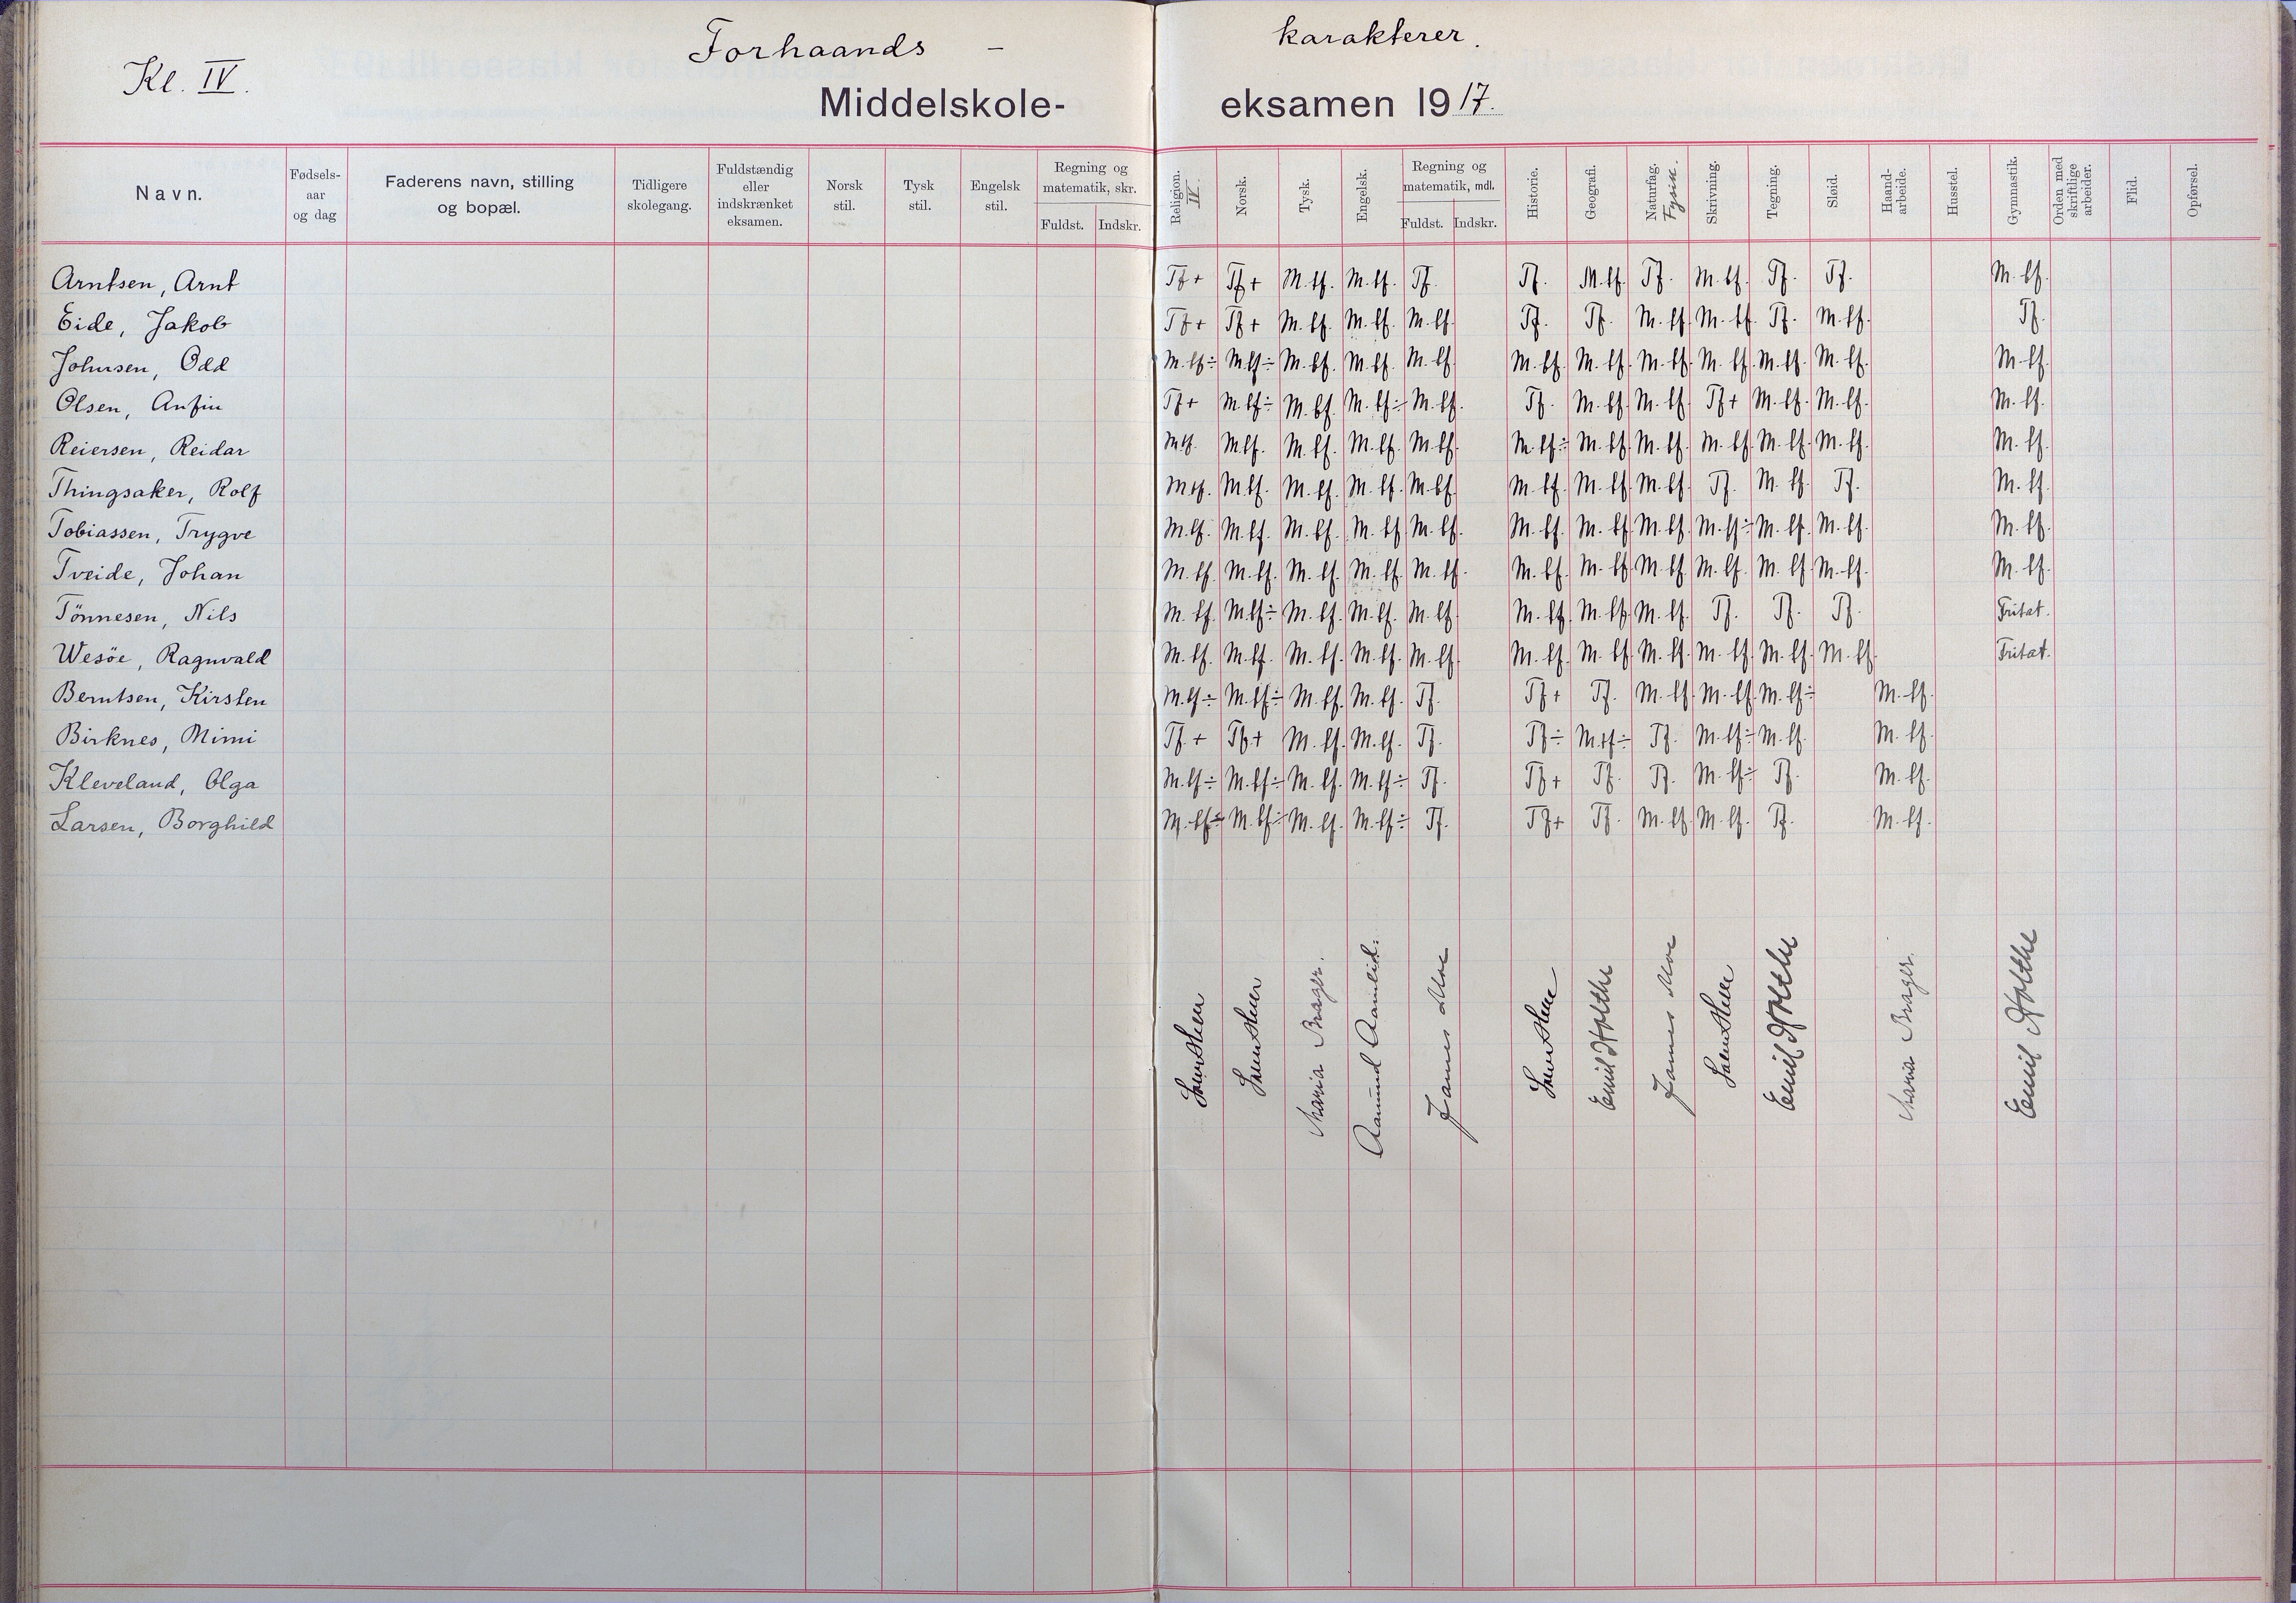 Forhaands - karakterer.
Kl. IV.
Middelskole- eksamen 1917.
Navn. Fødsels- aar og dag Faderens navn, stilling og bopæl. Tidligere skolegang. Fuldstændig eller indskrænket eksamen. Norsk stil. Tysk stil. Engelsk stil. Regning og matematik, skr. Fuldst. Indskr. Religion. IV. Norsk. Tysk. Engelsk. Regning og matematik, mdl. Fuldst. Indskr. Historie. Geografi. Naturfag. Fysik. Skrivning. Tegning. Sløid. Hand- arbeide. Husstel. Gymnastik. Orden med skriftlige arbeider. Flid. Opførsel.
Arntsen, Arnt Tf+ Tf+ M.tf. M.tf. Tf. Tf. M.tf. Tf. M.tf. Tf. Tf. M.tf.
Eide, Jakob Tf+ Tf+ M.tf. M.tf. M.tf. Tf. Tf. M.tf. M.tf. Tf. M.tf. Tf.
Johnsen, Odd M.tf÷ M.tf÷ M.tf. M.tf. M.tf. M.tf. M.tf. M.tf. M.tf. M.tf. M.tf. M.tf.
Olsen, Anfin Tf+ M.tf÷ M.tf. M.tf÷ M.tf. Tf. M.tf. M.tf. Tf+ M.tf. M.tf. M.tf.
Reiersen, Reidar M.tf. M.tf. M.tf. M.tf. M.tf. M.tf÷ M.tf. M.tf. M.tf. M.tf. M.tf. M.tf.
Thingsaker, Rolf M.tf. M.tf. M.tf. M.tf. M.tf. M.tf. M.tf. M.tf. Tf. M.tf. Tf. M.tf.
Tobiassen, Trygve M.tf. M.tf. M.tf. M.tf. M.tf. M.tf. M.tf. M.tf. M.tf÷ M.tf. M.tf. M.tf.
Tveide, Johan M.tf. M.tf. M.tf. M.tf. M.tf. M.tf. M.tf. M.tf. M.tf. M.tf. M.tf. M.tf.
Tönnesen, Nils M.tf. M.tf÷ M.tf. M.tf. M.tf. M.tf. M.tf. M.tf. Tf. Tf. Tf. Fritat.
Wesöe, Ragnvald M.tf. M.tf. M.tf. M.tf. M.tf. M.tf. M.tf. M.tf. M.tf. M.tf. M.tf. Fritat.
Berntsen, Kirsten M.tf÷ M.tf÷ M.tf. M.tf. Tf. Tf+ Tf. M.tf. M.tf. M.tf÷ M.tf.
Birknes, Mimi Tf.+ Tf+ M.tf. M.tf. Tf. Tf÷ M.tf÷ Tf. M.tf÷ M.tf. M.tf.
Kleveland, Olga M.tf÷ M.tf÷ M.tf. M.tf÷ Tf. Tf+ Tf. Tf. M.tf÷ Tf. M.tf.
Larsen, Borghild M.tf÷ M.tf÷ M.tf. M.tf÷ Tf. Tf+ Tf. M.tf. M.tf. Tf. M.tf.
Maria Brager.
Aamund Aamlid.
James Moe
Emil Holthe
James Moe
Emil Holthe
Maria Brager.
Emil Holthe